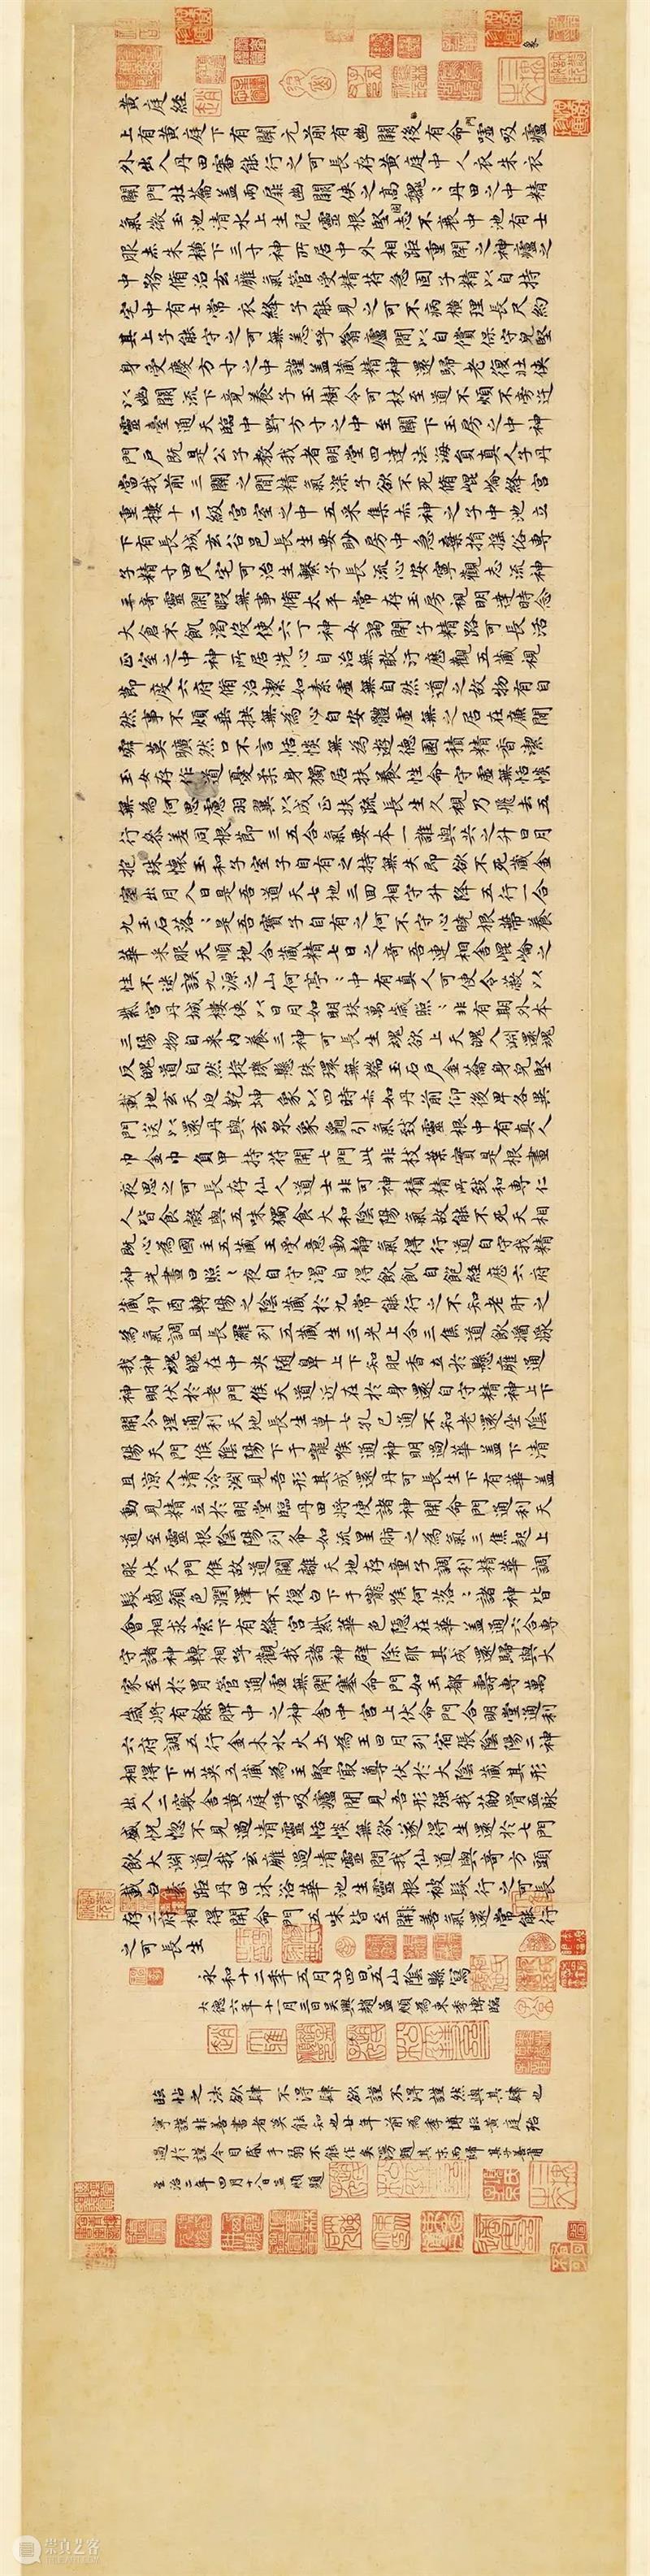 黃庭經
上有黃庭下有關元前有幽關後有命門噓吸廬
外出入丹田審能行之可長存黃庭中人衣朱衣
關門壯蘥蓋兩扉幽關俠之高魏魏丹田之中精
氣微玉池清水上生肥靈根堅固志不衰中池有士
服赤朱橫下三寸神所居中外相距重閉之神廬之
中務脩治玄廱氣管受精符急固子精以自持
宅中有士常衣絳子能見之可不病橫理長尺約
其上子能守之可無恙呼翕廬間以自償保守皃堅
身受慶方寸之中謹蓋藏精神還歸老復壯俠
以幽關流下竟養子玉樹令可杖至道不煩不旁迕
靈臺通天臨中野方寸之中至關下玉房之中神
門戶既是公子教我者明堂四達法海員真人子丹
當我前三關之間精氣深子欲不死脩崐崘絳宮
重樓十二級宮室之中五采集赤神之子中池立
下有長城玄谷邑長生要眇房中急棄捐搖俗專
子精寸田尺宅可治生繫子長流心安寧觀志流神
三奇靈閑暇無事脩太平常存玉房視明達時念
大倉不飢渴役使六丁神女謁閉子精路可長活
正室之中神所居洗心自治無敢汙歷觀五藏視
節度六府脩治潔如素虛無自然道之故物有自
然事不煩垂拱無為心自安體虛無之居在廉間
寂莫曠然口不言恬惔無為遊德園積精香潔
玉女存作道憂柔身獨居扶養性命守虛無恬惔
無為何思慮羽翼以成正扶疏長生久視乃飛去五
行參差同根節三五合氣要本一誰與共之升日月
抱珠懷玉和子室子自有之持無失即欲不死藏金
室出月入日是吾道天七地三回相守升降五行一合
九玉石落落是吾寶子自有之何不守心曉根蔕養
華采服天順地合藏精七日之奇吾連相舍崐崘之
性不迷誤九源之山何亭亭中有真人可使令蔽以
紫宮丹城樓俠以日月如明珠萬歲照照非有期外本
三陽物自來內養三神可長生魂欲上天魄入淵還魂
反魄道自然㨨璣懸珠環無端玉石戶金蘥身皃堅
載地玄天迫乾坤象以四時赤如丹前仰後卑各異
門送以還丹與玄泉象龜引氣致靈根中有真人
巾金巾負甲持符開七門此非枝葉實是根晝
夜思之可長存仙人道士非可神積精所致和專仁
人皆食穀與五味獨食大和陰陽氣故能不死天相
既心為國主五藏王受意動靜氣得行道自守我精
神光晝日照照夜自守渴自得飲飢自飽經歷六府
藏卯酉轉陽之陰藏於九常能行之不知老肝之
為氣調且長羅列五藏生三光上合三焦道飲漿
我神魂魄在中央隨鼻上下知肥香立於懸廱通
神明伏於老門候天道近在於身還自守精神上下
開分理通利天地長生草七孔已通不知老還坐陰
陽天門候陰陽下于嚨喉通神明過華蓋下清
且涼入清泠淵見吾形其成還丹可長生下有華蓋
動見精立於明堂臨丹田將使諸神開命門通利天
道至靈根陰陽列布如流星肺之為氣三焦起上
服伏天門候故道闚離天地存童子調利精華調
髮齒顏色潤澤不復白下于嚨喉何落落諸神皆
會相求索下有絳宮紫華色隱在華蓋通六合專
守諸神轉相呼觀我諸神辟除耶其成還歸與大
家至於胃管通虛無閉塞命門如玉都壽專萬
歲將有餘脾中之神舍中宮上伏命門合明堂通利
六府調五行金木水火土為王日月列宿張陰陽二神
相得下玉英五藏為主腎寂尊伏於大陰藏其形
出入二竅舍黃庭呼吸廬間見吾形強我筋骨血脉
盛怳惚不見過清靈恬惔無欲遂得生還於七門
飲大淵道我玄廱過清靈問我仙道與奇方頭
戴白素距丹田沐浴華池生靈根被髮行之可長
存二府相得開命門五味皆至開善氣還常能行
之可長生
永和十二年五月廿四日五山陰縣寫
大德六年十一月三日吳興趙孟頫為來季博臨
臨帖之法欲肆不得肆欲謹不得謹然與其肆也
寧謹非善書者莫能知也廿年前為季博臨黃庭殆
過於謹今目昏手弱不能作矣
至治二年四月十八日孟頫題